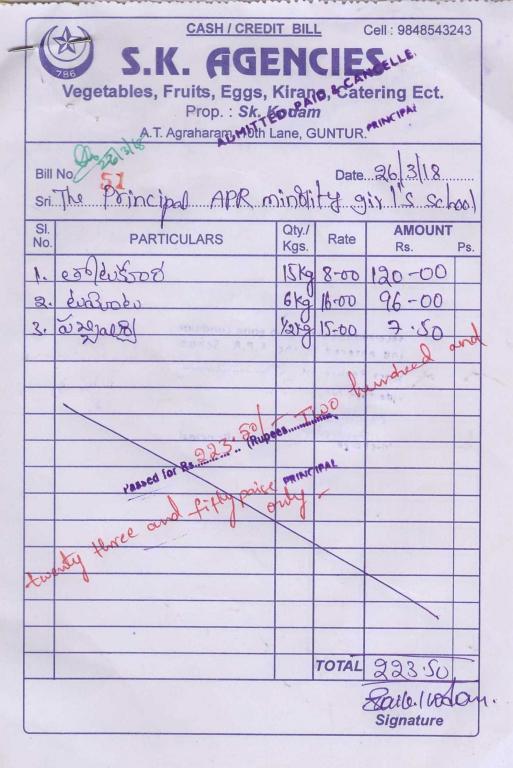 CASH / CREDIT BILL
Cell : 9848543243
786
S.K. AGENCIES
Vegetables, Fruits, Eggs, Kirana, Catering Ect.
Prop. : Sk. Kadam
A.T. Agraharam, 10th Lane, GUNTUR.
ADMITTED PAID & CANCELLE.
PRINCIPAL
26/3/18
Bill No. 51
Date 26/3/18
Sri. The Principal APR minority girl's school
Sl. No. PARTICULARS Qty./ Kgs. Rate AMOUNT Rs. Ps.
1. 15kg 8-00 120-00
2. 6kg 16-00 96-00
3. 1/2kg 15-00 7.50
Passed for Rs. 223.50/- (Rupees Two hundred and
PRINCIPAL
twenty three and fifty paise only -
TOTAL 223.50
Signature